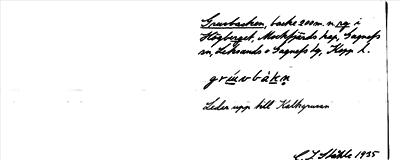 Gruvbacken, backe 200 m. n. ng i
Högberget, Mockfjärds kap, Sagnefs
sn, Leksands o Sagnefs tg, Kopp. l.
grúvbàkn̥
Leder upp till Kalkgruvan
C. J. Ståhle 1935